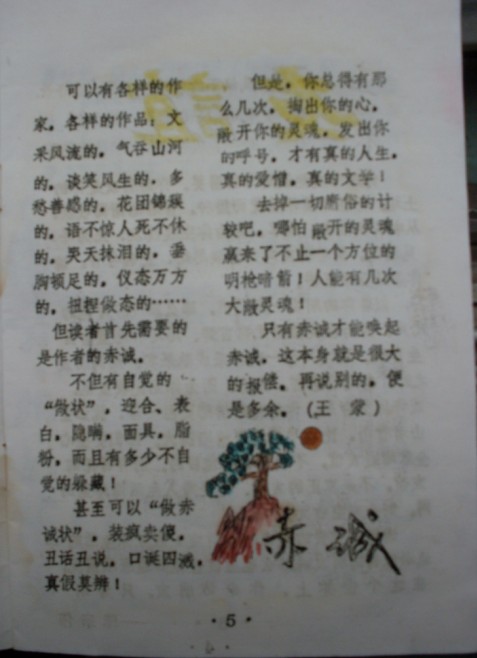 可以有各样的作
家，各样的作品：文
采风流的，气吞山河
的，谈笑风生的，多
愁善感的，花团锦簇
的，语不惊人死不休
的，哭天抹泪的，捶
胸顿足的，仪态万方
的，扭捏做态的……
但读者首先需要的
是作者的赤诚。
不但有自觉的
“做状”，迎合、表
白，隐瞒，面具，脂
粉，而且有多少不自
觉的躲藏！
甚至可以“做赤
诚状”，装疯卖傻，
丑话丑说，口涎四溅，
真假莫辨！
但是，你总得有那
么几次，掏出你的心，
敞开你的灵魂，发出你
的呼号，才有真的人生，
真的爱憎，真的文学！
去掉一切庸俗的计
较吧，哪怕敞开的灵魂
赢来了不止一个方位的
明枪暗箭！人能有几次
大敞灵魂！
只有赤诚才能唤起
赤诚，这本身就是很大
的报偿，再说别的，便
是多余。（王 蒙）
赤诚
·5·